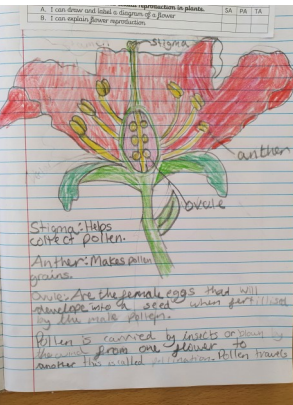 reproduction in plants.
A. I can draw and label a diagram of a flower
SA PA TA
B. I can explain flower reproduction
Stigma
anther
ovule
Stigma: Helps
collect pollen.
Anther: Makes pollen
grains.
Ovule: Are the female eggs that will
develope into a seed when fertilised
by the male pollen.
Pollen is carried by insects or blown by
the wind from one flower to
another this is called pollination. Pollen travels